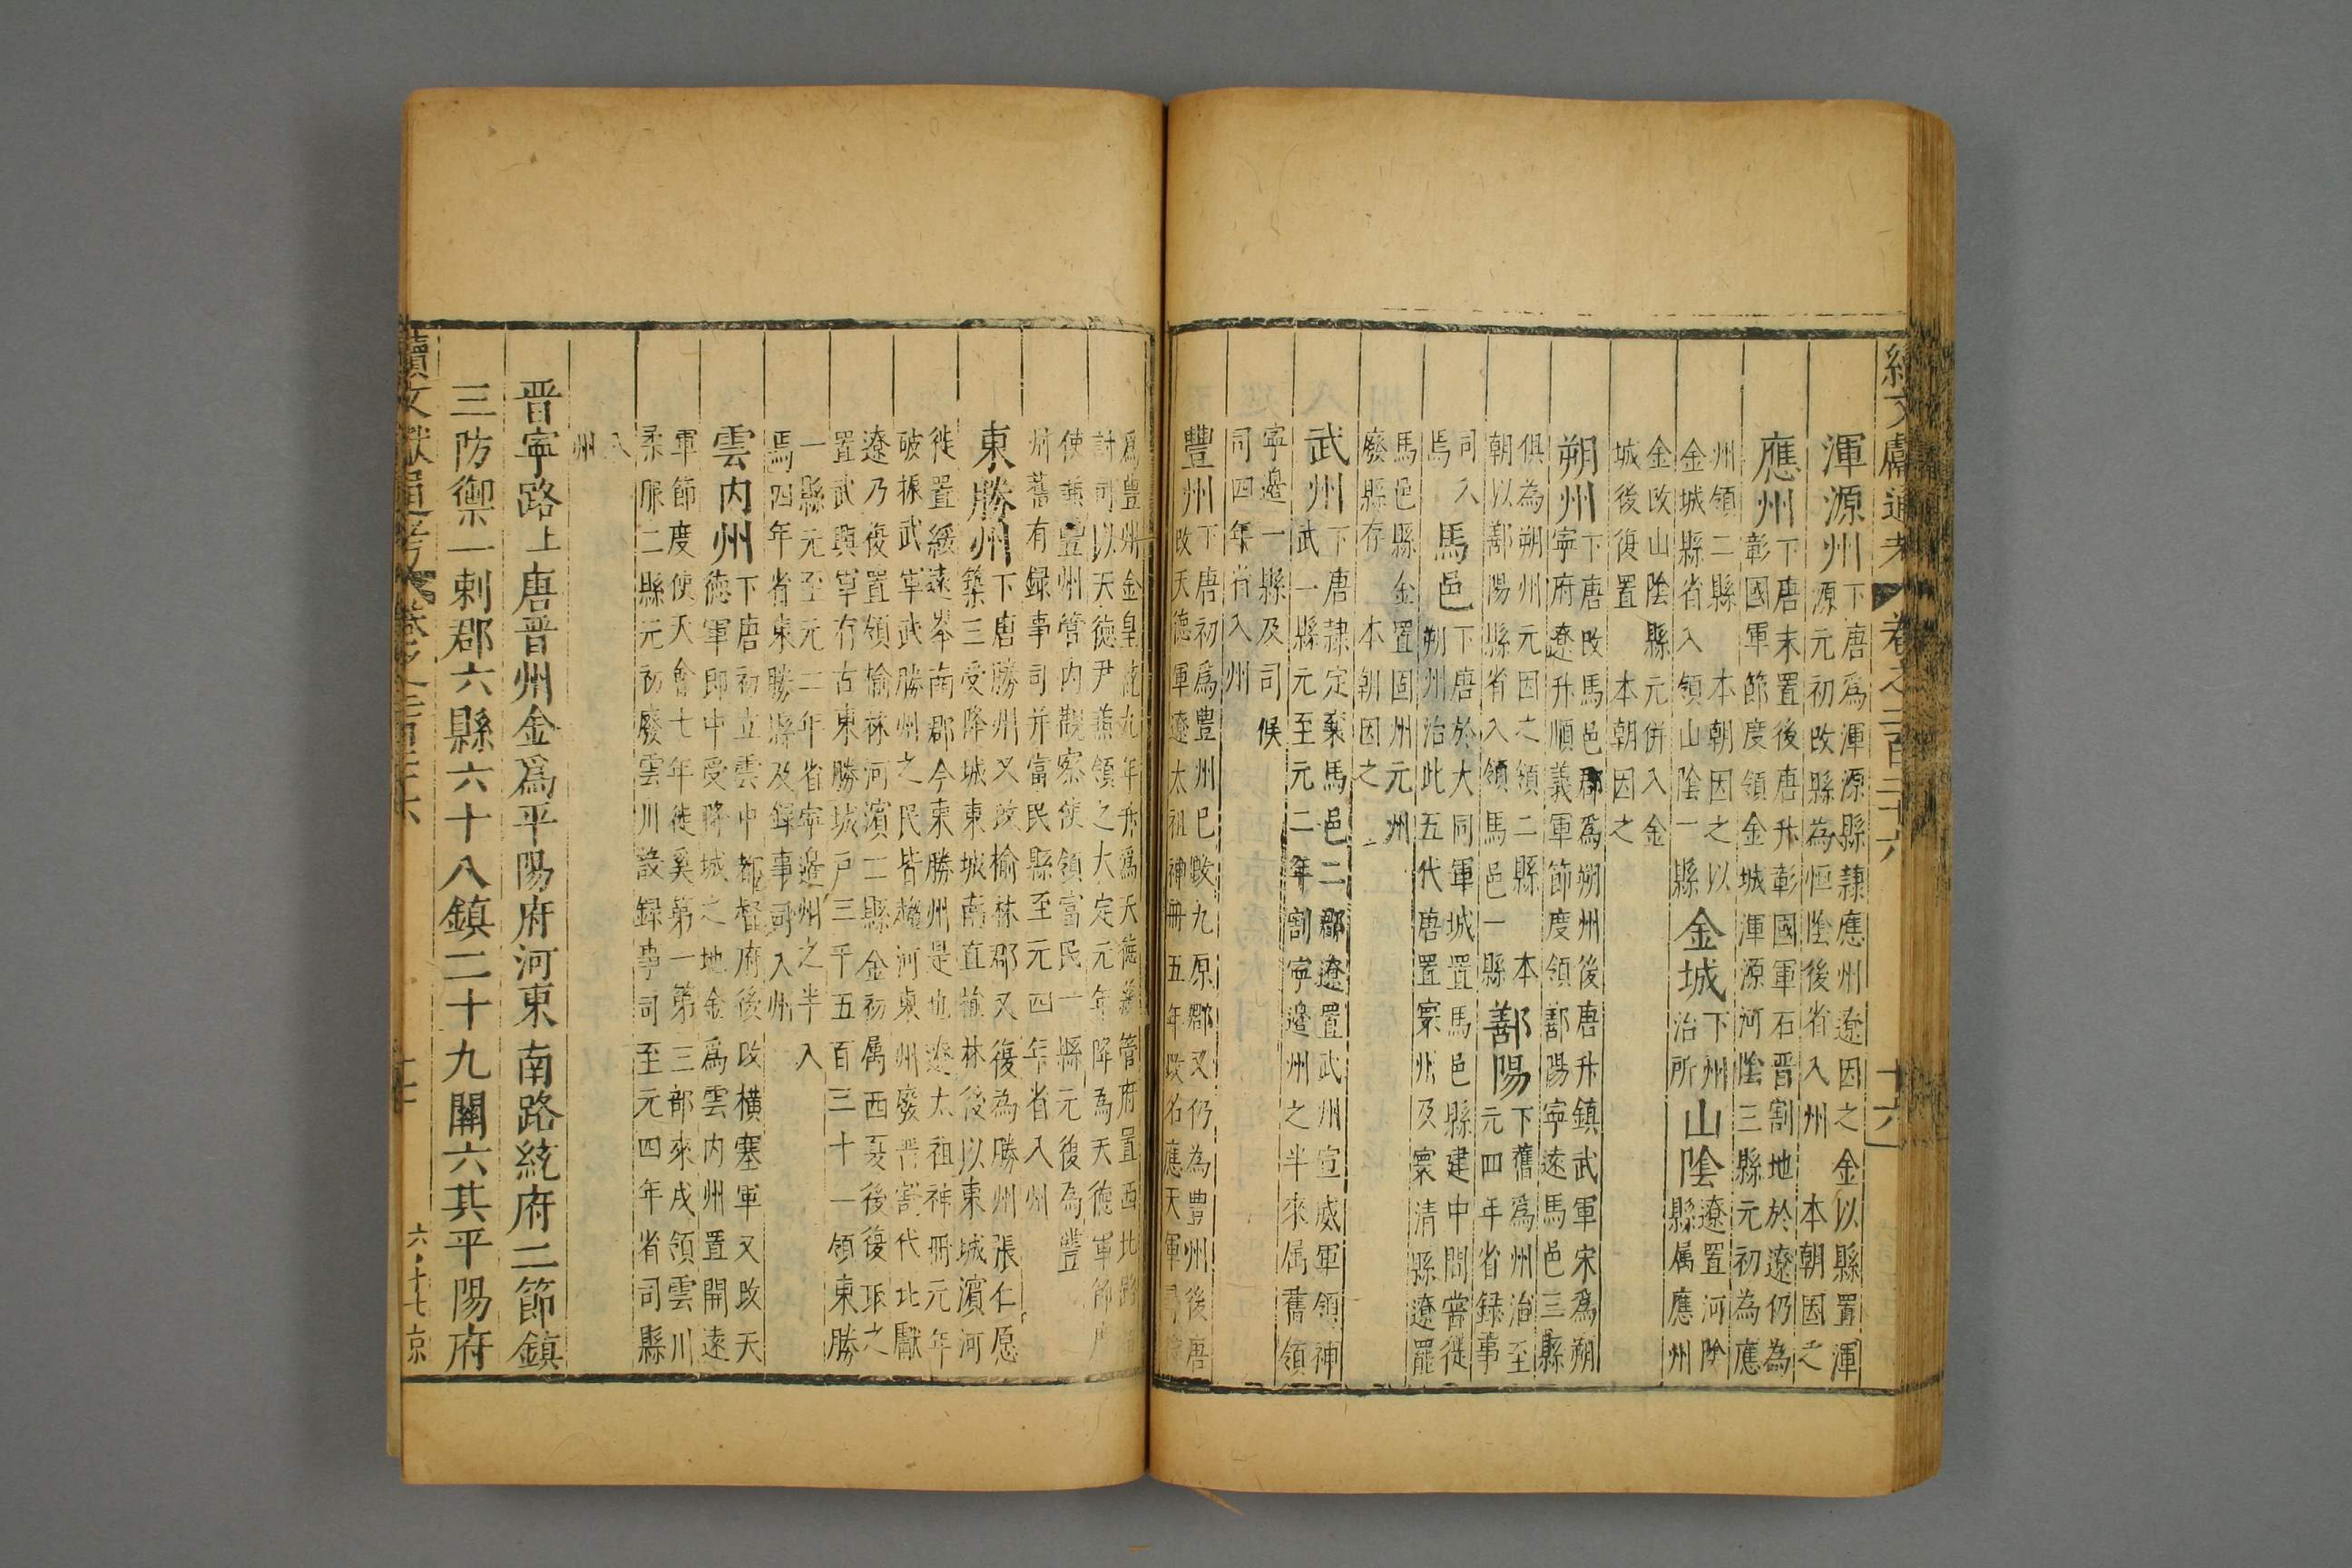 續文獻通考 卷之二百二十六 十六
渾源州下唐爲渾源縣隷應州遼因之金以縣置渾
源元初改縣為恒陰後省入州 本朝因之
應州下唐末置後唐升彰國軍石晋割地於遼仍為
彰國軍節度領金城渾源河陰三縣元初為應
州領二縣 本朝因之以
金城縣省入領山陰一縣
金城下州治所 山陰遼置河陰縣属應州
金改山陰縣元併入金
城後復置 本朝因之
朔州下唐改馬邑郡爲朔州後唐升鎮武軍宋爲朔
寧府遼升順義軍節度領鄯陽寧遠馬邑三縣
俱為朔州元因之領二縣 本
朝以鄯陽縣省入領馬邑一縣
鄯陽下舊爲州治至元四年省録事
司入焉
馬邑下唐於大同軍城置馬邑縣建中間嘗徙
朔州治此五代唐置寰州及寰清縣遼罷
馬邑縣金置固州元州
廢縣存 本朝因之
武州下唐隷定襄馬邑二郡遼置武州宣威軍領神
武一縣元至元二年割寧邊州之半來属舊領
寧邊一縣及司 候
司四年省入州
豐州下唐初爲豊州巳改九原郡又仍為豊州後唐
改天德軍遼太祖神冊五年改名應天軍
爲豊州金皇統九年升爲天德總管府置西北路
討司以天德尹兼領之大定元年降為天德軍節
使兼豊州管内觀察使領富民一縣元復為豐
州舊有録事司并富民縣至元四年省入州
東勝州下唐勝州又改榆林郡又復為勝州張仁愿
築三受降城東城南直榆林後以東城濱河
徙置綏遠峯南郡今東勝州是也遼太祖神冊元年
破振武軍武勝州之民皆趨河東州廢晋割代北獻
遼乃復置領榆林河濱二縣金初属西夏後復取之
置武興軍有古東勝城戸三千五百三十一領東勝
一縣元至元二年省寧邊州之半入
焉四年省東勝縣及録事司入州
雲内州下唐初立雲中都督府後改横塞軍又改天
德軍即中受降城之地金爲雲内州置開遠
軍節度使天會七年徙奚第一第三部來戍領雲川
柔服二縣元初廢雲川設録事司至元四年省司縣
入州
晋寧路上唐晋州金爲平陽府河東南路統府二節鎮
三防禦一刺郡六縣六十八鎮二十九關六其平陽府
續文獻通考
六十七京